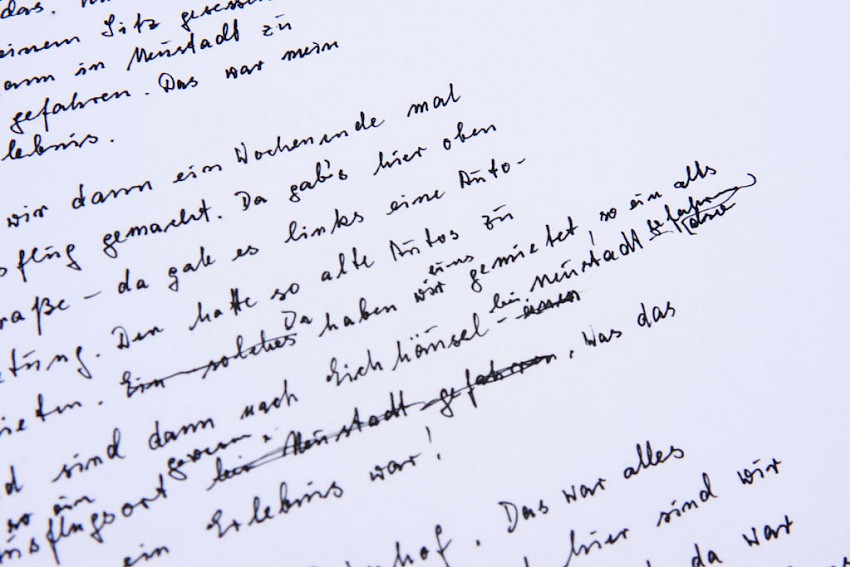 das.
einem Sitz gesessen
dann in Neustadt zu
gefahren. Das war mein
lebnis.
wir dann ein Wochenende mal
sflug gemacht. Da gab's hier oben
raße – da gab es links eine Auto-
etung. Der hatte so alte Autos zu
ieten. Ein solches Da haben wir uns gemietet, so ein alts
d sind dann nach Eichhäusel – einen bei Neustadt gefahren
so ein
usflugsort gewesen. bei Neustadt gefahren. Was das
ein Erlebnis war!
hof. Das war alles
hier sind wir
da war